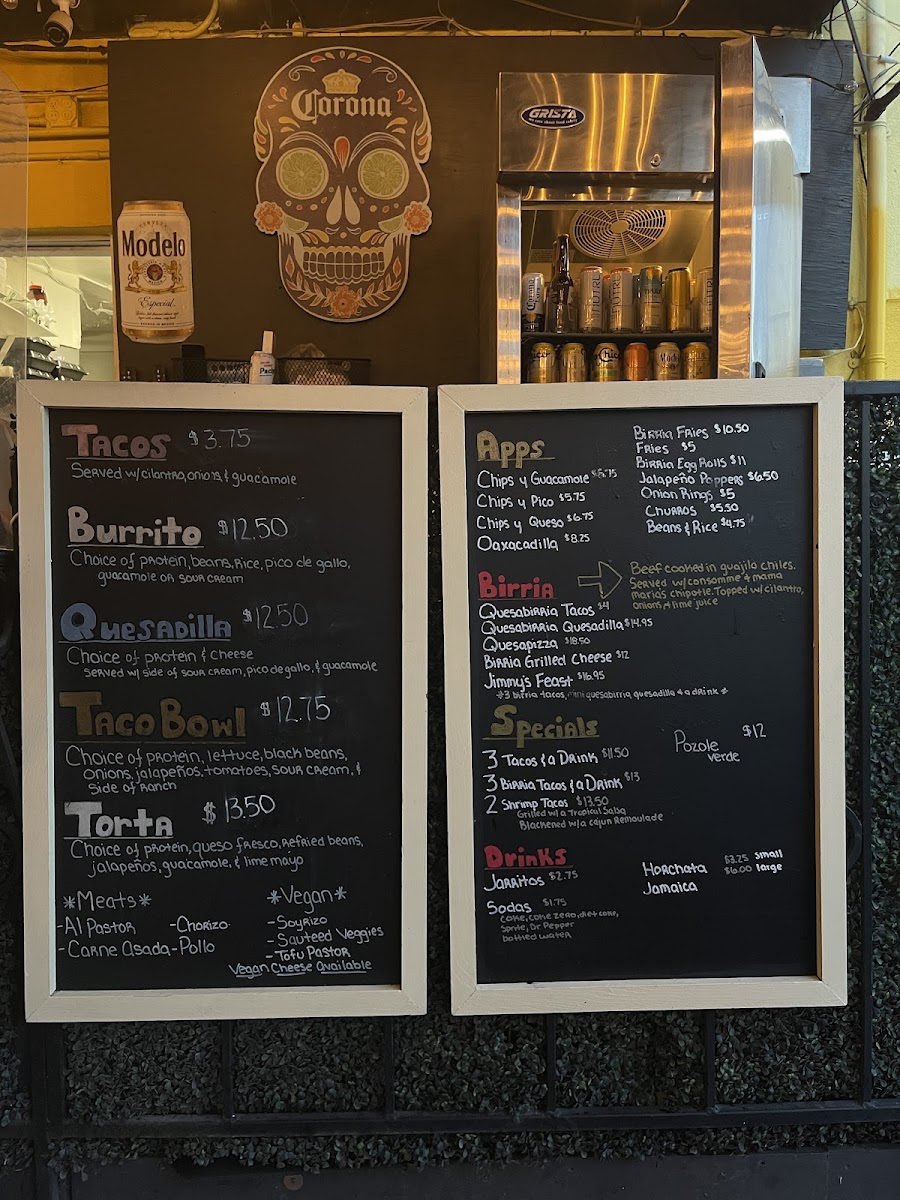 Corona
GRISTA
Modelo
Especial
TACOS $3.75
SERVED W/CILANTRO, ONIONS, & GUACAMOLE
Burrito $12.50
Choice of PROTEIN, BEANS, RICE, PICO DE GALLO,
GUACAMOLE OR SOUR CREAM
QUESADILLA $12.50
Choice of PROTEIN & CHEESE
SERVED W/ SIDE OF SOUR CREAM, PICO DE GALLO, & GUACAMOLE
TACO BOWL $12.75
Choice of PROTEIN, LETTUCE, BLACK BEANS,
ONIONS, JALAPEÑOS, TOMATOES, SOUR CREAM, &
SIDE OF RANCH
Torta $13.50
Choice of PROTEIN, QUESO FRESCO, REFRIED BEANS,
JALAPEÑOS, GUACAMOLE, & LIME MAYO
*Meats*
-Al PASTOR -CHORIZO
-CARNE ASADA -POLLO
*Vegan*
-SOYRIZO
-SAUTEED VEGGIES
-TOFU PASTOR
VEGAN CHEESE AVAILABLE
Apps
CHIPS y GUACAMOLE $6.75
CHIPS y PICO $5.75
CHIPS y QUESO $6.75
OAXACADILLA $8.25
BIRRIA FRIES $10.50
FRIES $5
BIRRIA EGG ROLLS $11
JALAPEÑO POPPERS $6.50
ONION RINGS $5
CHURROS $5.50
BEANS & RICE $4.75
Birria
Beef cooked in guajilo chiles.
Served w/consomme & mama
maria's chipotle. Topped w/cilantro,
onions & lime juice
QUESABIRRIA TACOS $4
QUESABIRRIA QUESADILLA $14.95
QUESAPIZZA $18.50
BIRRIA GRILLED CHEESE $12
JIMMY'S FEAST $16.95
*3 birria tacos, mini quesabirria quesadilla & a drink*
Specials
3 TACOS & a DRINK $11.50
3 BIRRIA TACOS & a DRINK $13
2 SHRIMP TACOS $13.50
Grilled w/a Tropical Salsa
Blackened w/a cajun Remoulade
Pozole $12
verde
Drinks
JARRITOS $2.75
SODAS $1.75
COKE, COKE ZERO, DIET COKE,
Sprite, Dr Pepper
bottled water
HORCHATA $3.25 small
JAMAICA $6.00 large